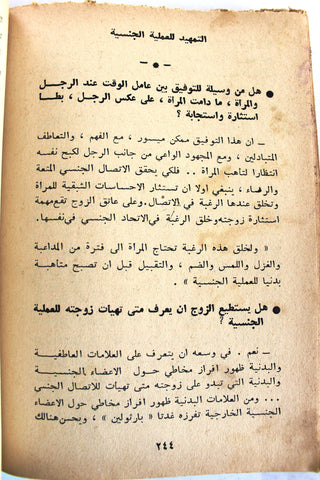 التمهيد للعملية الجنسية
● هل من وسيلة للتوفيق بين عامل الوقت عند الرجل
والمراة ، ما دامت المراة ، على عكس الرجل ، بطا
استثارة واستجابة ؟
ـ ان هذا التوفيق ممكن ميسور ، مع الفهم ، والتعاطف
المتبادلين ، ومع المجهود الواعي من جانب الرجل لكبح نفسه
انتظارا لتاهب المراة .. فلكي يحقق الاتصال الجنسي المتعة
والرضاء، ينبغي اولا ان تستثار الاحساسات الشبقية للمراة
وتخلق عندها الرغبة في الاتصال. وعلى عاتق الزوج تقع مهمة
استثارة زوجته وخلق الرغبة في الاتحاد الجنسي في نفسها.
« ولخلق هذه الرغبة تحتاج المراة الى فترة من المداعبة
والغزل واللمس والضم ، والتقبيل قبل ان تصبح متاهبة
بدنيا للعملية الجنسية » .
● هل يستطيع الزوج ان يعرف متى تهيات زوجته للعملية
الجنسية ؟
ـ نعم . في وسعه ان يتعرف على العلامات العاطفية
والبدنية ظهور افراز مخاطي حول الاعضاء الجنسية
والبدنية التي تبدو على زوجته متى تهيات للاتصال الجنسي
... ومن العلامات البدنية ظهور افراز مخاطي حول الاعضاء
الجنسية الخارجية تفرزه غدتا « بارثولين » ، ويحسن هنالك
٢٤٤